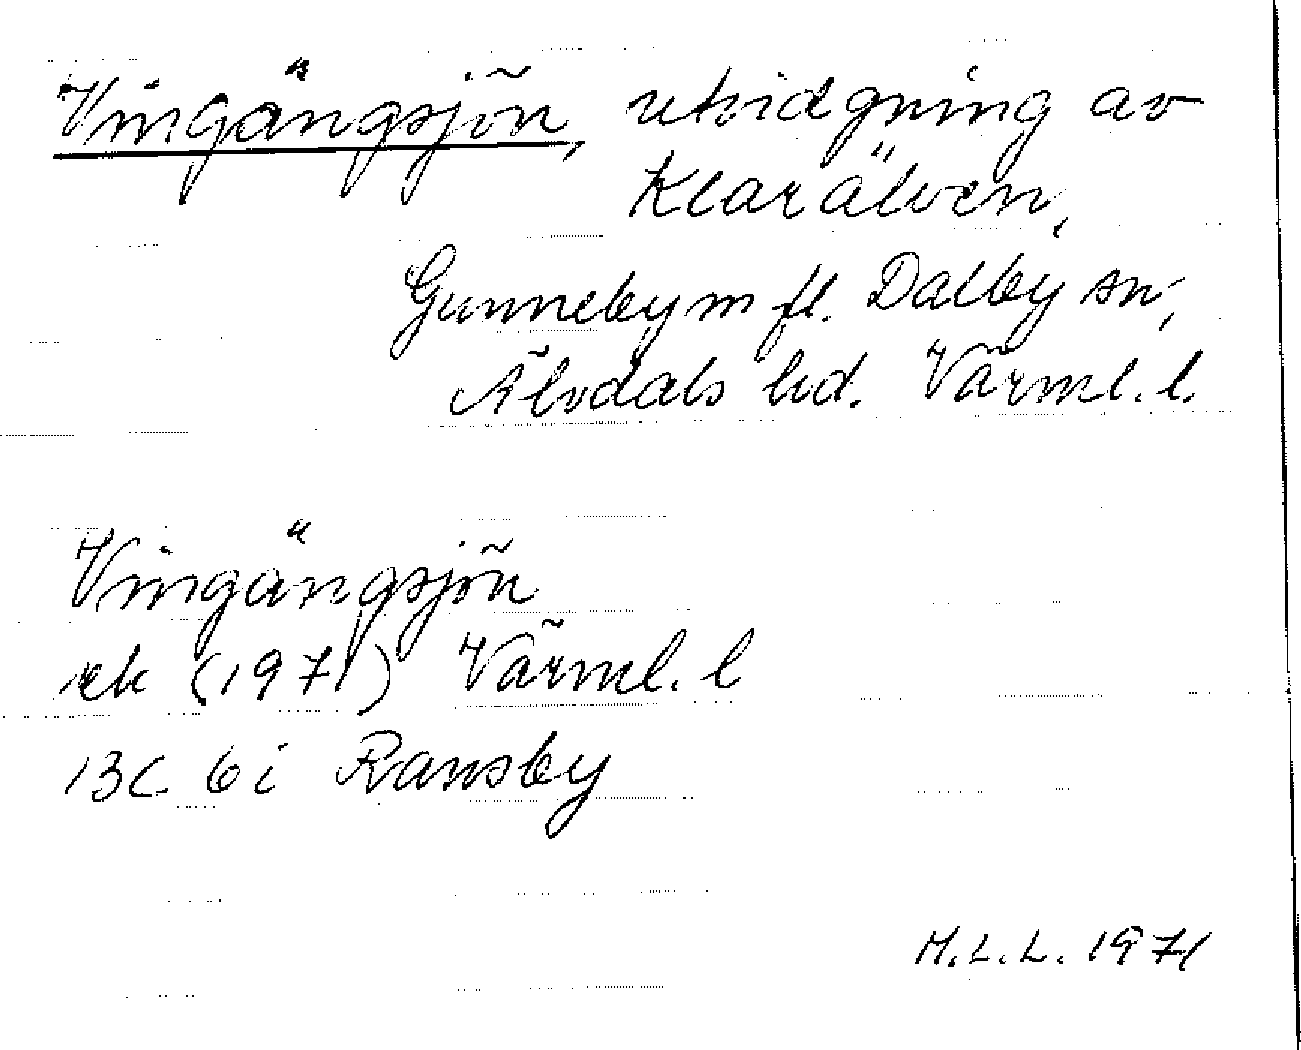 Vingängsjön, utvidgning av
Klarälven,
Gunneby m fl. Dalby sn,
Älvdals hd. Värml. l.
Vingängsjön
ek (1971) Värml. l
13C 6i Ransby
M.L.L. 1971